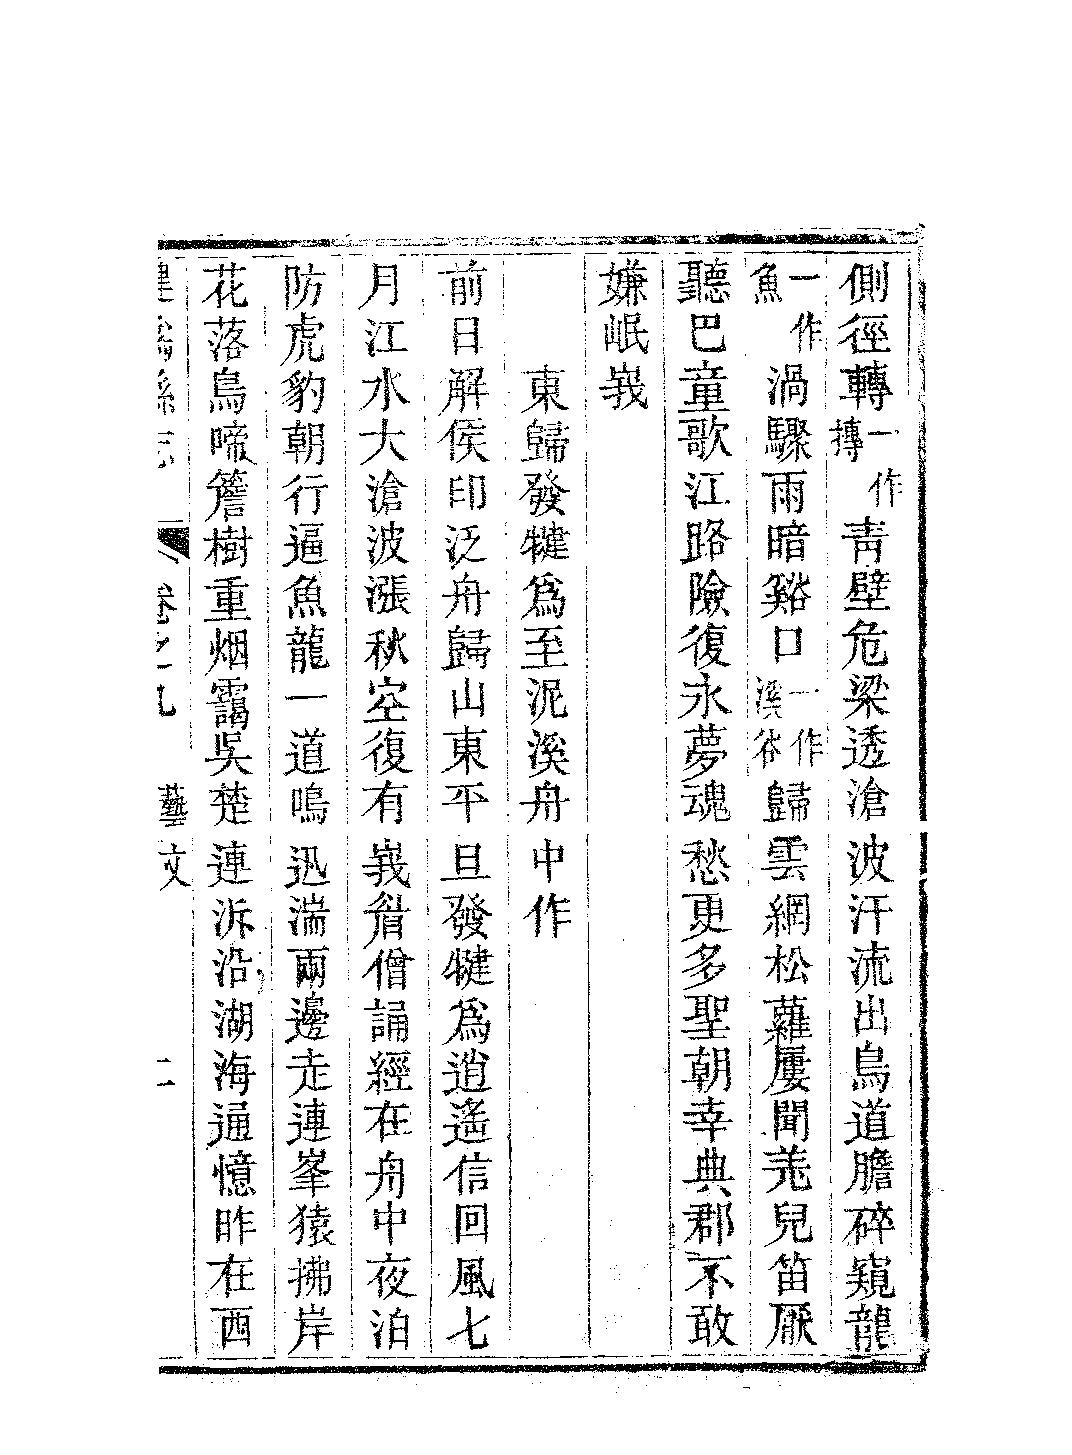 側徑轉一作摶青壁危梁透滄波汗流出鳥道膽碎窺龍
一作魚渦驟雨暗谿口一作溪谷歸雲網松蘿屢聞羌兒笛厭
聽巴童歌江路險復永夢魂愁更多聖朝幸典郡不敢
嫌岷峩
東歸發犍爲至泥溪舟中作
前日解侯印泛舟歸山東平旦發犍爲逍遙信回風七
月江水大滄波漲秋空復有峩眉僧誦經在舟中夜泊
防虎豹朝行逼魚龍一道鳴迅湍兩邊走連峯猿拂岸
花落鳥啼簷樹重烟靄吳楚連泝沿湖海通憶昨在西
卷之九 藝文 二